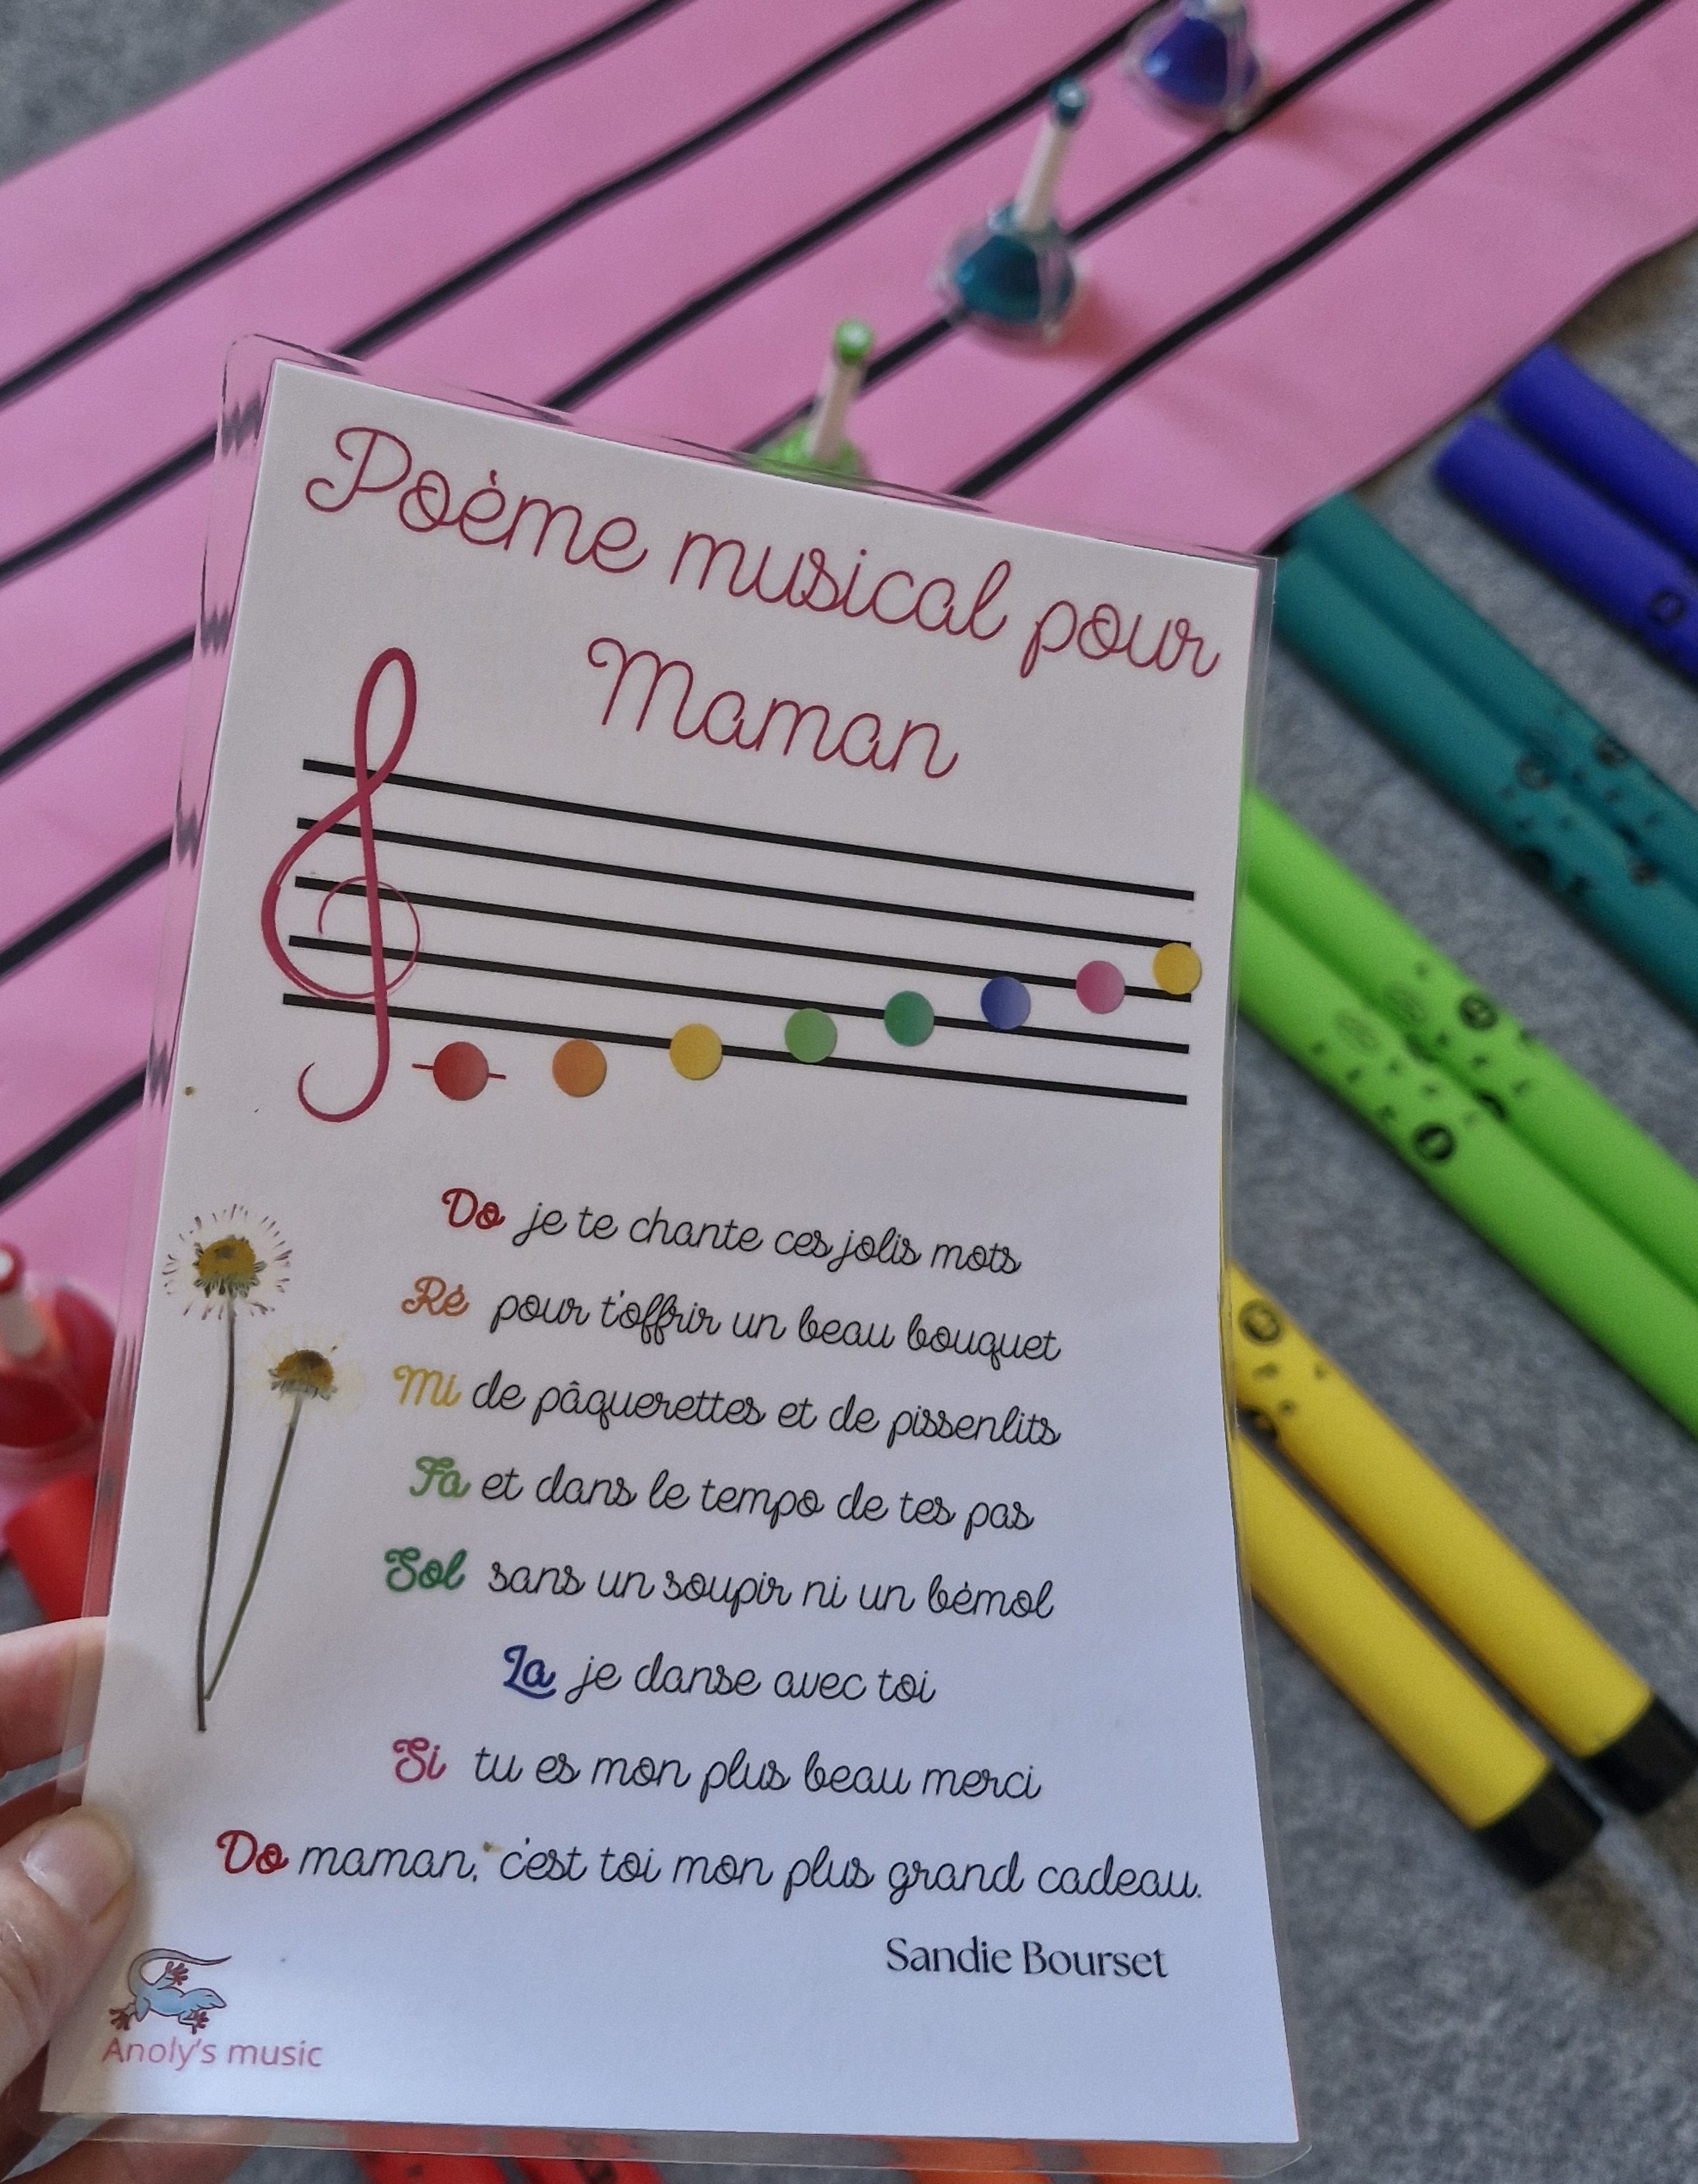 Poème musical pour
Maman
Do je te chante ces jolis mots
Ré pour t'offrir un beau bouquet
Mi de pâquerettes et de pissenlits
Fa et dans le tempo de tes pas
Sol sans un soupir ni un bémol
La je danse avec toi
Si tu es mon plus beau merci
Do maman, c'est toi mon plus grand cadeau.
Sandie Bourset
Anoly's music